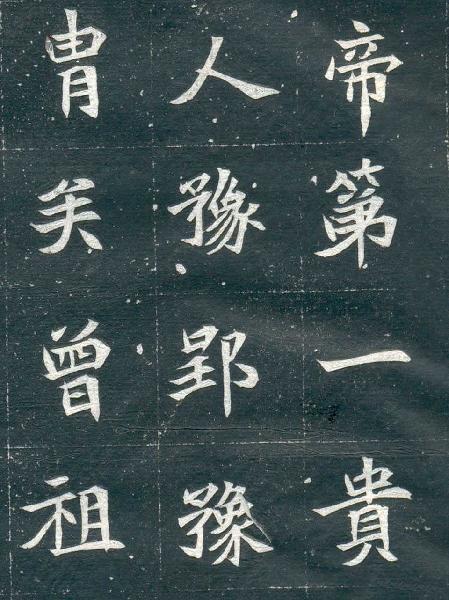 帝第一貴
人豫郢豫
胄矣曾祖